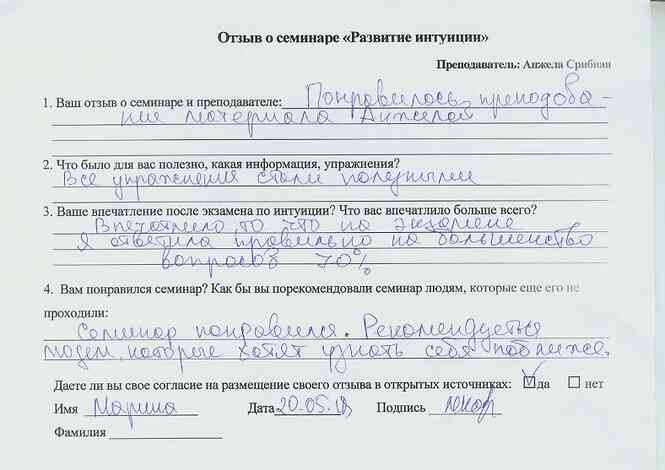 Отзыв о семинаре «Развитие интуиции»
Преподаватель: Анжела Срибная
1. Ваш отзыв о семинаре и преподавателе: Понравилось преподова-
ние материала Анжелой
2. Что было для вас полезно, какая информация, упражнения?
Все упражнения стали полезными
3. Ваше впечатление после экзамена по интуиции? Что вас впечатлило больше всего?
Впечатлило то что на экзамене
я ответила правильно на большенство
вопросов 70%
4. Вам понравился семинар? Как бы вы порекомендовали семинар людям, которые еще его не
проходили:
Семинар понравился. Рекомендуется
людем, которые хотят узнать себя поближе.
Даете ли вы свое согласие на размещение своего отзыва в открытых источниках: да нет
Имя Марина Дата 20.05.18 Подпись
Фамилия